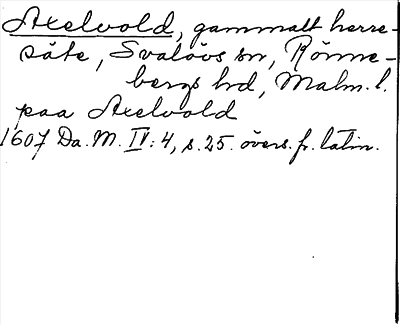 Axelvold, gammalt herre-
säte, Svalövs sn, Rönne-
bergs hrd, Malm. l.
paa Axelvold
1607 Da. M. IV: 4, s. 25. övers. fr. latin.